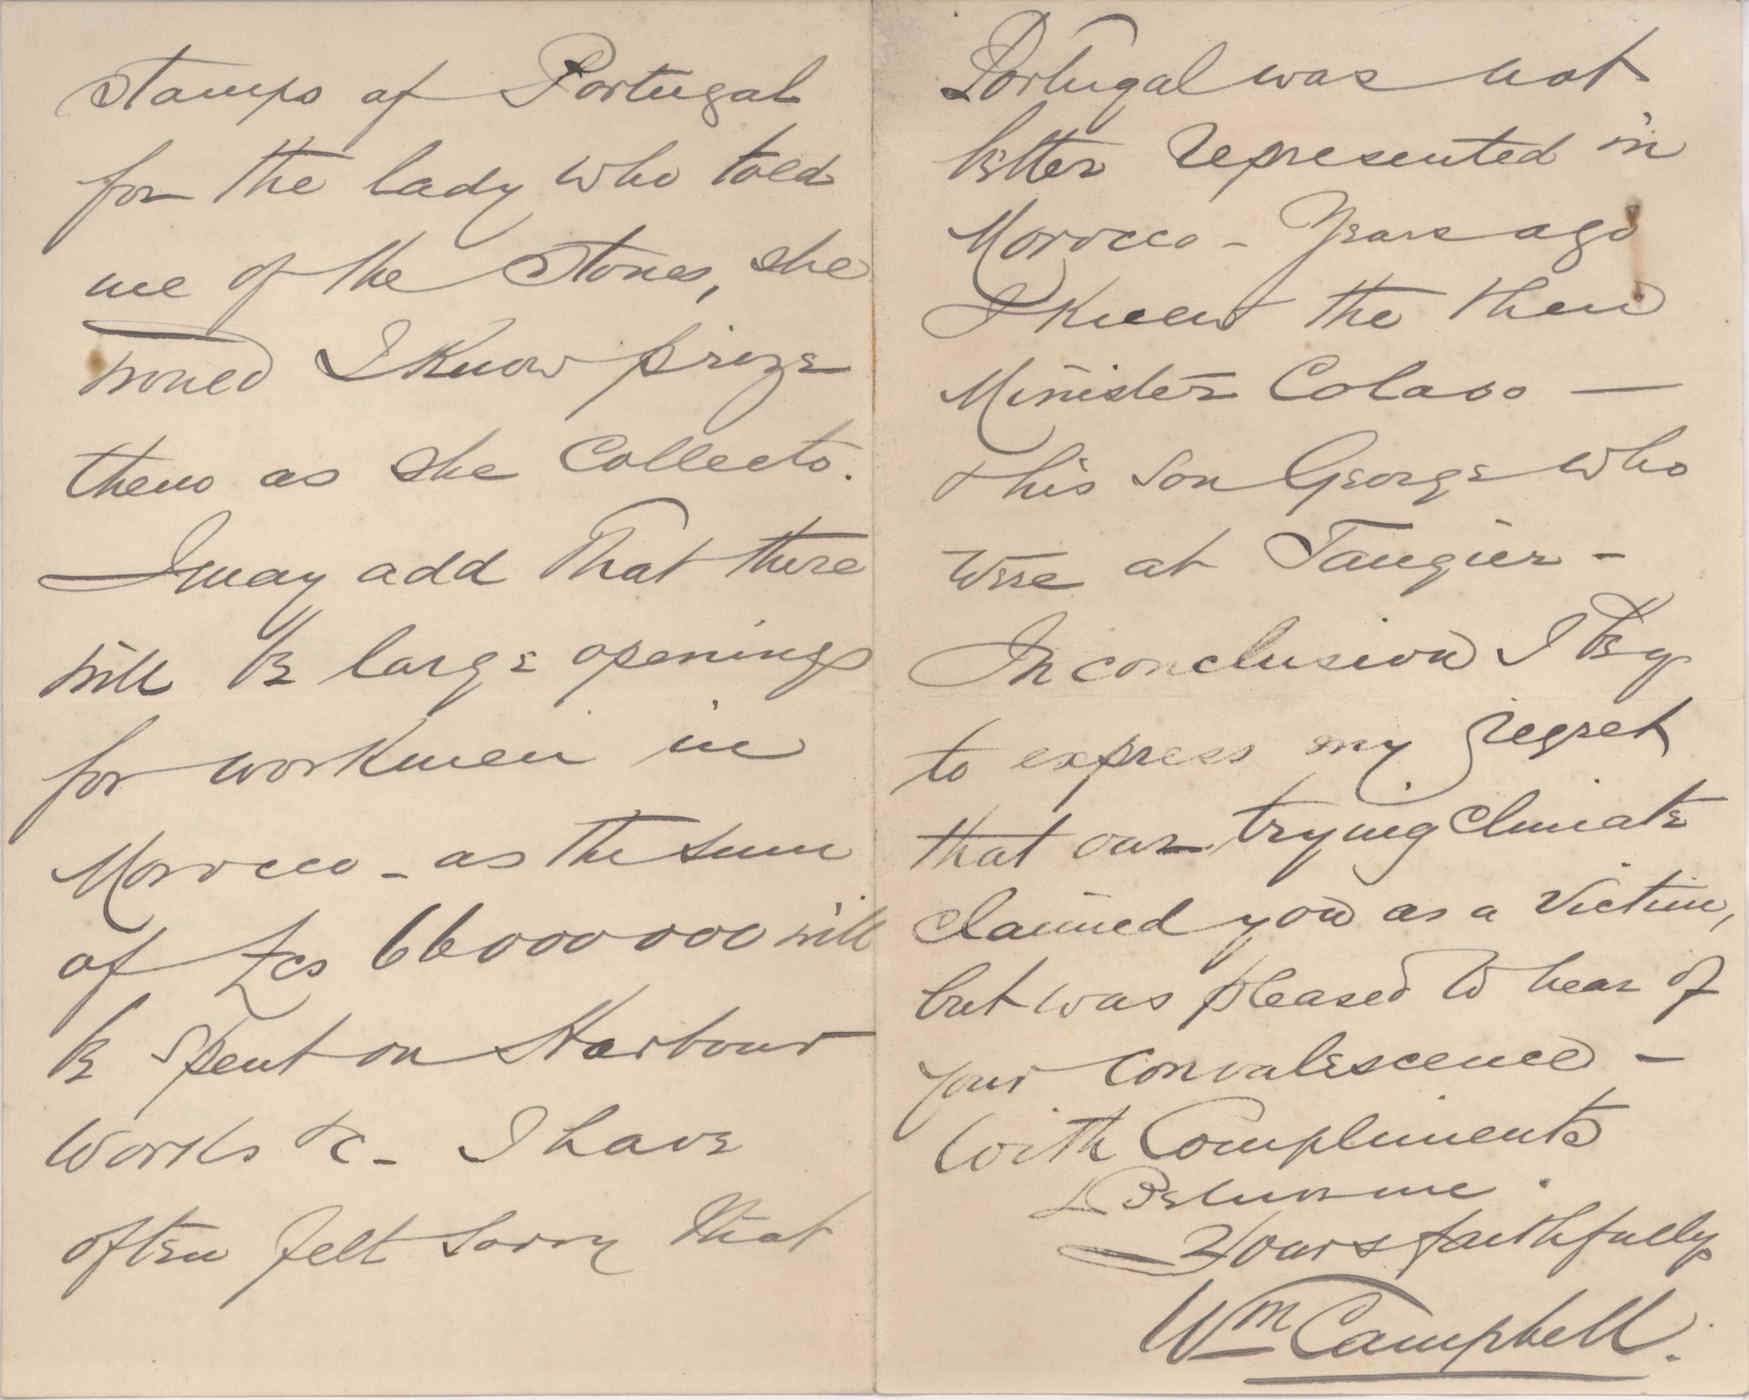 stamps of Portugal
for the lady who told
me of the Stones, she
would I know prize
them as she Collects.
I may add that there
will be large openings
for workmen in
Morocco - as the sum
of 66000000 will
be spent on Harbour
Works &c - I have
often felt sorry that
Portugal was not
better represented in
Morocco - Years ago
I knew the then
Minister Colaso —
& his son George who
were at Tangier -
In conclusion I beg
to express my regret
that our trying climate
claimed you as a victim,
but was pleased to hear of
your convalescence -
With Compliments
Believe me.
Yours faithfully
Wm Campbell.